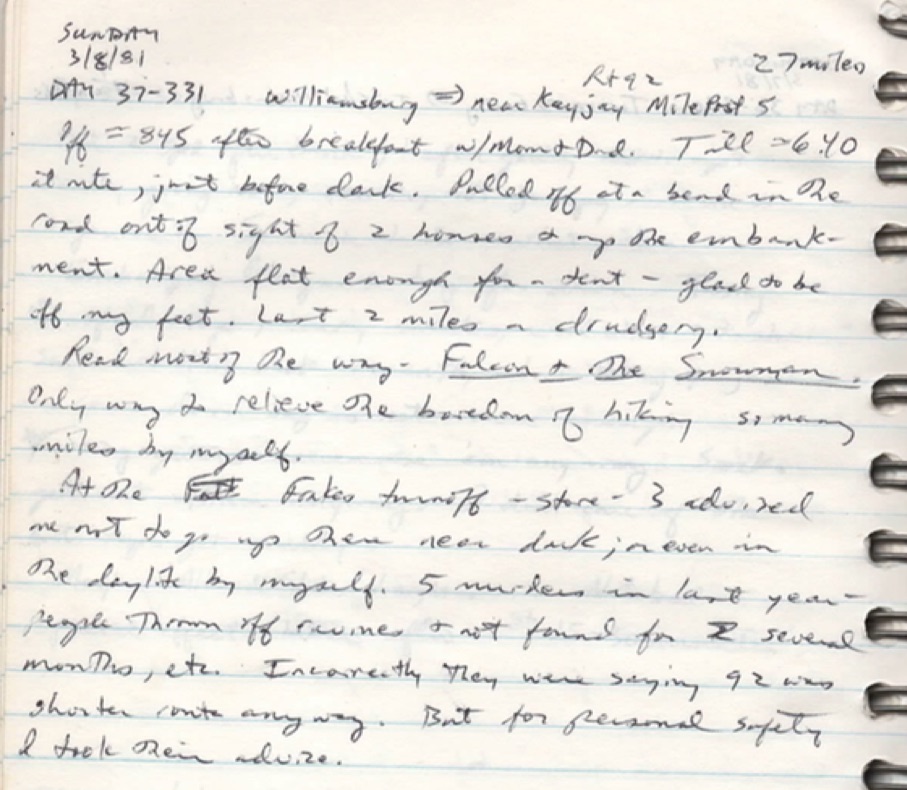 SUNDAY
3/8/81
27 miles
Rt 92
DAY 37-331 Williamsburg => near Kayjay Mile Post 5
Off ≈ 845 after breakfast w/Mom & Dad. Till ≈ 6:40
at nite, just before dark. Pulled off at a bend in the
road out of sight of 2 houses & up the embank-
ment. Area flat enough for a tent - glad to be
off my feet. Last 2 miles a drudgery.
Read most of the way - Falcon & the Snowman.
Only way to relieve the boredom of hiking so many
miles by myself.
At the Frakes turnoff - store - 3 advised
me not to go up there near dark, or even in
the daylite by myself. 5 murders in last year -
people thrown off ravines & not found for several
months, etc. Incorrectly they were saying 92 was
shorter route anyway. But for personal safety
I took their advice.